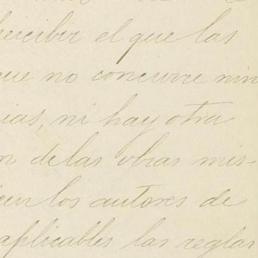 percibir el que las
que no concurre nin
ias, ni hay otra
de las obras mis-
los autores de
aplicables las reglas